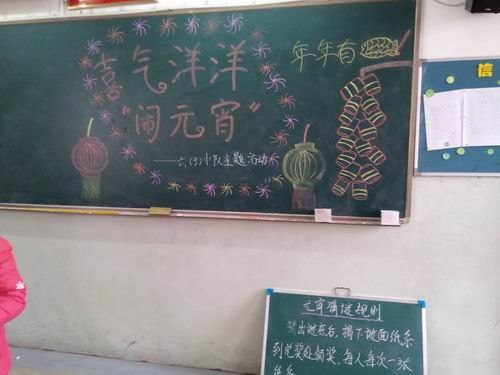 喜气洋洋
年年有
"闹元宵"
——六(3)小队主题活动
信
元宵猜谜规则
猜出谜底后,揭下谜面纸条
到兑奖处领奖,每人每次一张
纸条